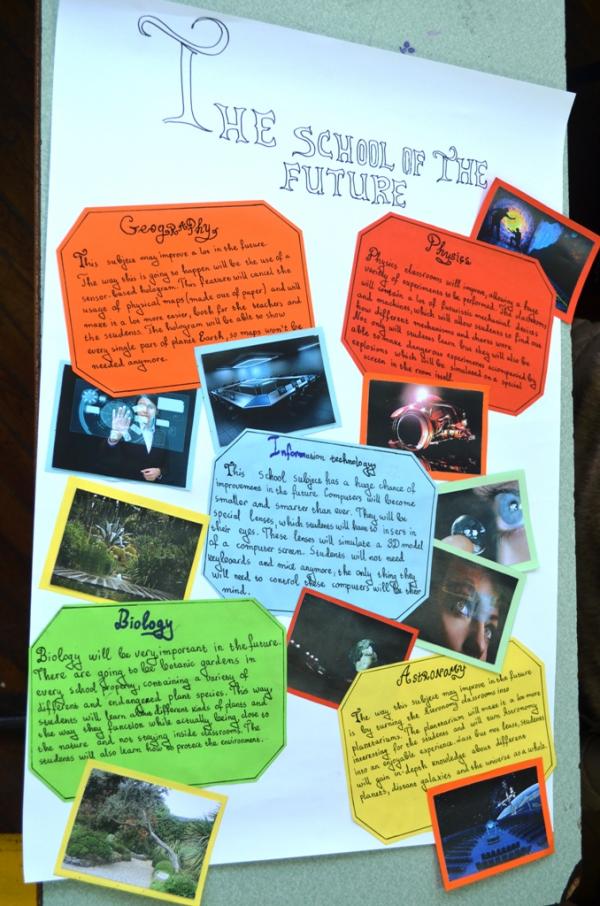 THE SCHOOL OF THE
FUTURE
Geography
This subject may improve a lot in the future.
The way this is going to happen will be the use of a
sensor-based hologram. This feature will cancel the
usage of physical maps (made out of paper) and will
make is a lot more easier, both for the teachers and
the students. The hologram will be able to show
every single part of planet Earth, so maps won't be
needed anymore.
Physics
Physics classrooms will improve, allowing a huge
variety of experiments to be performed. The classrooms
will contain a lot of futuristic mechanical devices
and machines, which will allow students to find out
how different mechanisms and
Not only will students learn, but they will also be
able to make dangerous experiments accompanied by
explosions which will be simulated on a special
screen in the room itself.
Information technology
This school subject has a huge chance of
improvement in the future. Computers will become
smaller and smarter than ever. They will be
special lenses, which students will have to insert in
their eyes. These lenses will simulate a 3D model
of a computer screen. Students will not need
keyboards and mice anymore, the only thing they
will need to control these computers will be their
mind.
Biology
Biology will be very important in the future.
There are going to be botanic gardens in
every school property, containing a variety of
different and endangered plant species. This way
students will learn different kinds of plants and
the way they function while actually being close to
the nature and not staying inside classrooms. The
students will also learn how to protect the environment.
Astronomy
The way this subject may improve in the future
is by turning the astronomy classrooms into
planetariums. The planetarium will make it a lot more
interesting for the students and will turn Astronomy
into an enjoyable experience. Last but not least, students
will gain in-depth knowledge about different
planets, distant galaxies and the universe as a whole.